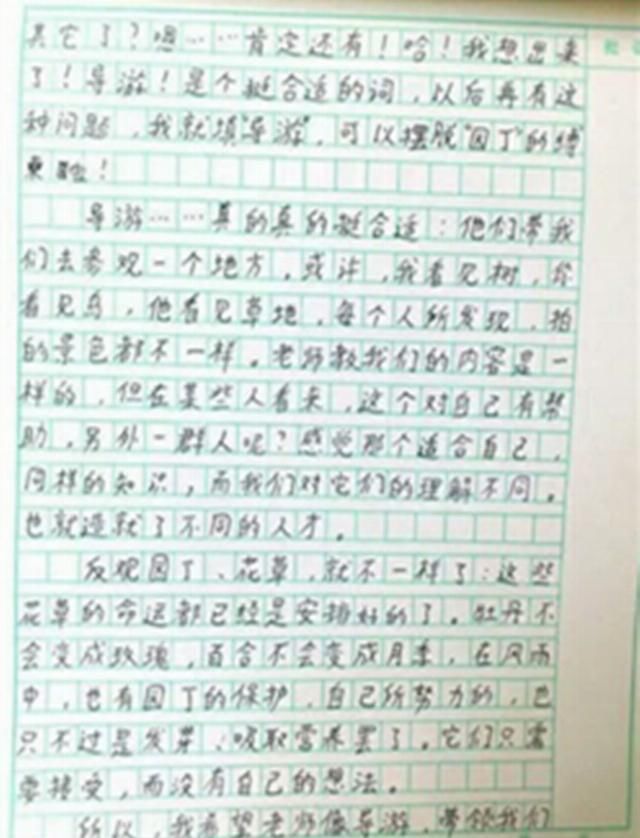 其它了？嗯……肯定还有！哈！我想出来
了！导游！是个挺合适的词，以后再有这
种问题，我就填"导游"，可以摆脱"园丁"的缚
束啦！
导游……真的真的挺合适：他们带我
们去参观一个地方，或许，我看见树，你
看见鸟，他看见草地，每个人所发现，拍
的景色都不一样。老师教我们的内容是一
样的，但在某些人看来，这个对自己有帮
助，另外一群人呢？感觉那个适合自己，
同样的知识，而我们对它们的理解不同。
也就造就了不同的人才。
反观园丁、花草，就不一样了：这些
花草的命运都已经是安排好的了。牡丹不
会变成玫瑰，百合不会变成月季，在风雨
中，也有园丁的保护，自己所努力的，也
只不过是发芽、吸取营养罢了。它们只需
要接受，而没有自己的想法。
所以，我希望老师像导游，带领我们